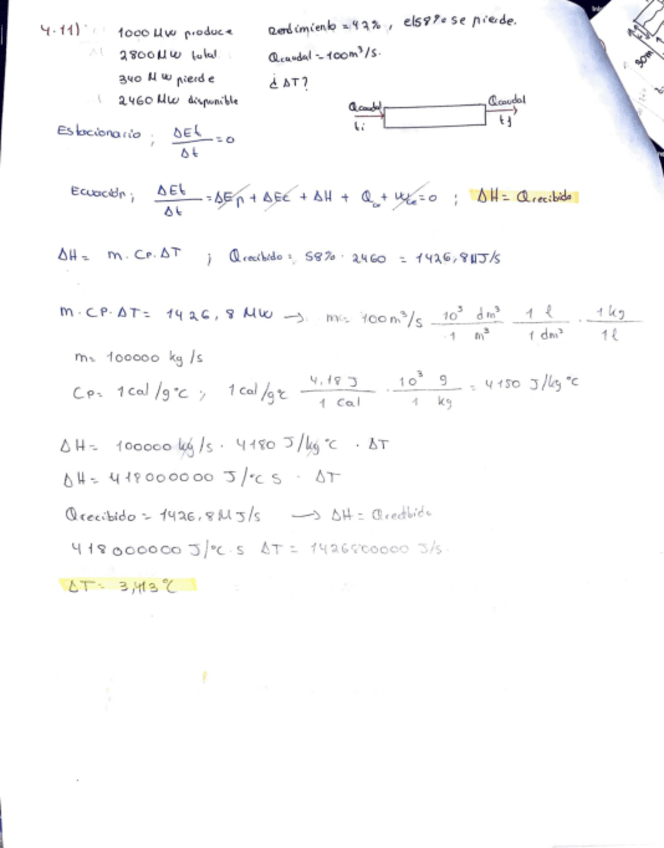 4.11) 1000 Mw produce Rendimiento = 42%, el 58% se pierde.
2800 Mw total Qcaudal = 100 m³/s.
340 Mw pierde ¿ΔT?
2460 Mw disponible
Qcaudal ti Qcaudal tf
Estacionario; ΔEt/Δt = 0
Ecuación; ΔEt/Δt = ΔEp + ΔEc + ΔH + Q + W = 0 ; ΔH = Qrecibido
ΔH = m. Cp. ΔT ; Qrecibido = 58% · 2460 = 1426,8 MJ/s
m. CP. ΔT = 1426,8 MW → m = 100 m³/s 10³ dm³/1 m³ · 1 l/1 dm³ · 1 kg/1 l
m = 100000 kg/s
Cp = 1 cal/g°C ; 1 cal/g°C 4,18 J/1 cal · 10³ g/1 kg = 4180 J/kg°C
ΔH = 100000 kg/s · 4180 J/kg°C · ΔT
ΔH = 418000000 J/°C s · ΔT
Qrecibido = 1426,8 MJ/s → ΔH = Qrecibido
418000000 J/°C·s ΔT = 1426800000 J/s.
ΔT = 3,413°C
30m